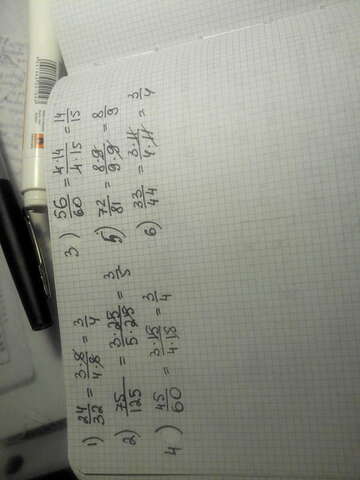 1) 24/32 = 3·8/4·8 = 3/4
2) 75/125 = 3·25/5·25 = 3/5
4) 45/60 = 3·15/4·15 = 3/4
3) 56/60 = 4·14/4·15 = 14/15
5) 72/81 = 8·9/9·9 = 8/9
6) 33/44 = 3·11/4·11 = 3/4